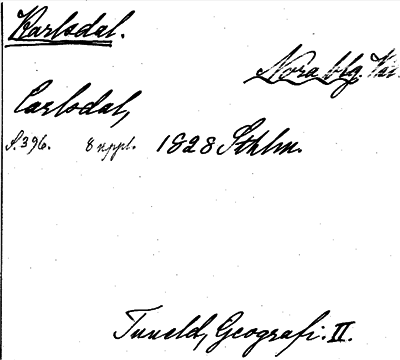 Karlsdal.
Nora blg.
Carlsdal,
S. 396. 8 uppl. 1828 Sthlm.
Tuneld, Geografi. II.